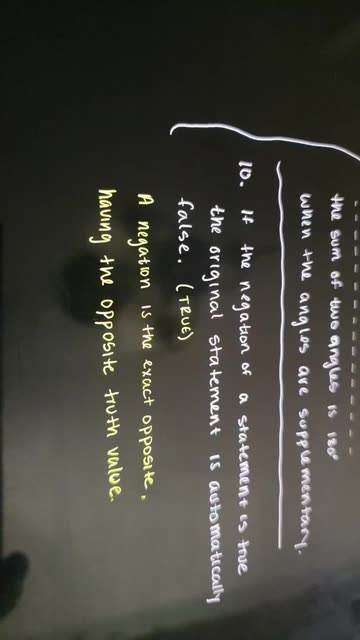 the sum of two angles is 180°
when the angles are supplementary.
10. If the negation of a statement is true
the original statement is automatically
false. (TRUE)
A negation is the exact opposite,
having the opposite truth value.